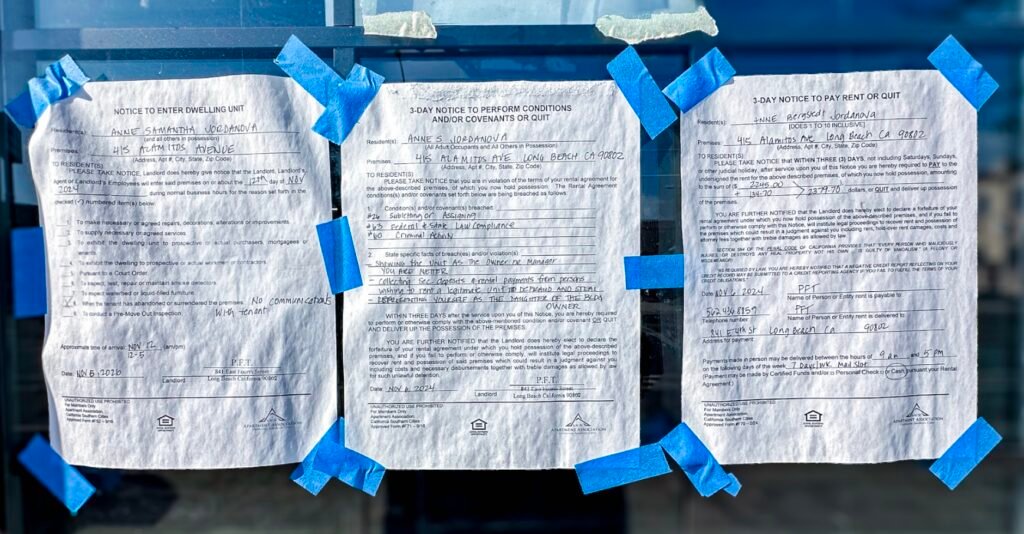 NOTICE TO ENTER DWELLING UNIT
Resident(s): ANNE SAMANTHA JORDANOVA
(and all others in possession)
Premises: 415 ALAMITOS AVENUE
(Address, Apt #, City, State, Zip Code)
TO RESIDENT(S):
PLEASE TAKE NOTICE that Landlord does hereby give notice that the Landlord, Landlord's
Agent or Landlord's Employees will enter said premises on or about the 12th day of NOV
2024 during normal business hours for the reason set forth in the
checked (✓) Numbered item(s) below:
To make necessary or agreed repairs, decorations, alterations or improvements
To supply necessary or agreed services
To exhibit the dwelling unit to prospective or actual purchasers, mortgagees or
tenants
To exhibit the dwelling to prospective or actual workmen or contractors
Pursuant to a Court Order
To inspect, test, repair or maintain smoke detectors
To inspect waterbed or liquid-filled furniture
When the tenant has abandoned or surrendered the premises No communications
To conduct a Pre-Move Out Inspection with tenant
Approximate time of arrival: NOV 12,
12-5
Date: NOV 6, P.P.T.
841 East Fourth Street
Landlord Long Beach California 90802
UNAUTHORIZED USE PROHIBITED
For Members Only
Apartment Association,
California Southern Cities
Approved Form
3-DAY NOTICE TO PERFORM CONDITIONS
AND/OR COVENANTS OR QUIT
Resident(s): ANNE S JORDANOVA
(All Adult Occupants and All Others in Possession)
Premises: 415 ALAMITOS AVE LONG BEACH CA 90802
(Address, Apt #, City, State, Zip Code)
TO RESIDENT(S):
PLEASE TAKE NOTICE that you are in violation of the terms of your rental agreement for
the above-described premises, of which you now hold possession. The Rental Agreement
condition(s) and/or covenants set forth below are being breached as follows:
1. Conditions(s) and/or covenant(s) breached:
#26 Subletting or Assigning
#63 Federal & State Law Compliance
#60 Criminal Activity
2. State specific facts of breaches(s) and/or violation(s):
- Showing the unit as the owner or manager
YOU ARE NEITHER
- Collecting sec deposits & rental payments from persons
wanting to rent a legitimate unit TO DEFRAUD AND STEAL
- REPRESENTING YOURSELF AS THE DAUGHTER OF THE BLDG
OWNER
WITHIN THREE DAYS after the service upon you of this Notice, you are hereby required to
perform or otherwise comply with the above-mentioned condition and/or covenant OR QUIT
AND DELIVER UP THE POSSESSION OF THE PREMISES.
YOU ARE FURTHER NOTIFIED that the Landlord does hereby elect to declare the
forfeiture of your rental agreement under which you hold possession of the above-described
premises, and if you fail to perform or otherwise comply, will institute legal proceedings to
recover rent and possession of said premises which could result in a judgment against you
including costs and necessary disbursements together with treble damages as allowed by law
for such unlawful detention.
Date: NOV 6, 2024 P.P.T.
841 East Fourth Street
Landlord Long Beach California 90802
UNAUTHORIZED USE PROHIBITED
For Members Only
Apartment Association,
California Southern Cities
Approved Form
APARTMENT ASSOCIATION
3-DAY NOTICE TO PAY RENT OR QUIT
Resident(s): ANNE Bergstedt Jordanova
(DOES 1 TO 10 INCLUSIVE)
Premises: 415 Alamitos Ave Long Beach CA 90802
(Address, Apt #, City, State, Zip Code)
TO RESIDENT(S):
PLEASE TAKE NOTICE that WITHIN THREE (3) DAYS, not including Saturdays, Sundays,
or other judicial holiday, after service upon you of this notice you are hereby required to PAY to the
undersigned the rent for the above described premises, of which you now hold possession, amounting
to the sum of ($ 2245.00
+ 134.70 2379.70 dollars, or QUIT and deliver up possession
of the premises.
YOU ARE FURTHER NOTIFIED that the Landlord does hereby elect to declare a forfeiture of your
rental agreement under which you hold possession of the above-described premises, and if you fail to
perform or otherwise comply, will institute legal proceedings to recover rent and possession of
the premises which could result in a judgment against you including rent, hold-over rent damages, costs and
attorney fees together with treble damages as allowed by law.
SECTION 594 OF THE PENAL CODE OF CALIFORNIA PROVIDES THAT "EVERY PERSON WHO MALICIOUSLY
INJURES, OR DESTROYS ANY REAL PROPERTY NOT HIS OWN IS GUILTY OF VANDALISM" (A FELONY OR
MISDEMEANOR)
"AS REQUIRED BY LAW, YOU ARE HEREBY NOTIFIED THAT A NEGATIVE CREDIT REPORT REFLECTING ON YOUR
CREDIT RECORD MAY BE SUBMITTED TO A CREDIT REPORTING AGENCY IF YOU FAIL TO FULFILL THE TERMS OF YOUR
CREDIT OBLIGATIONS."
Date NOV 6, 2024 PPT
Name of Person or Entity rent is payable to
562 436 8157 PPT
Telephone number Name of Person or Entity rent is delivered to
841 E 4th St Long Beach Ca 90802
Address for payment
Payments made in person may be delivered between the hours of 9 am and 5 PM
on the following days of the week: 7 Days/Wk Mail Slot
(Payment may be made by Certified Funds and/or Personal Check or Cash pursuant your Rental
Agreement)
UNAUTHORIZED USE PROHIBITED
For Members Only
Apartment Association,
California Southern Cities
Approved Form
APARTMENT ASSOCIATION